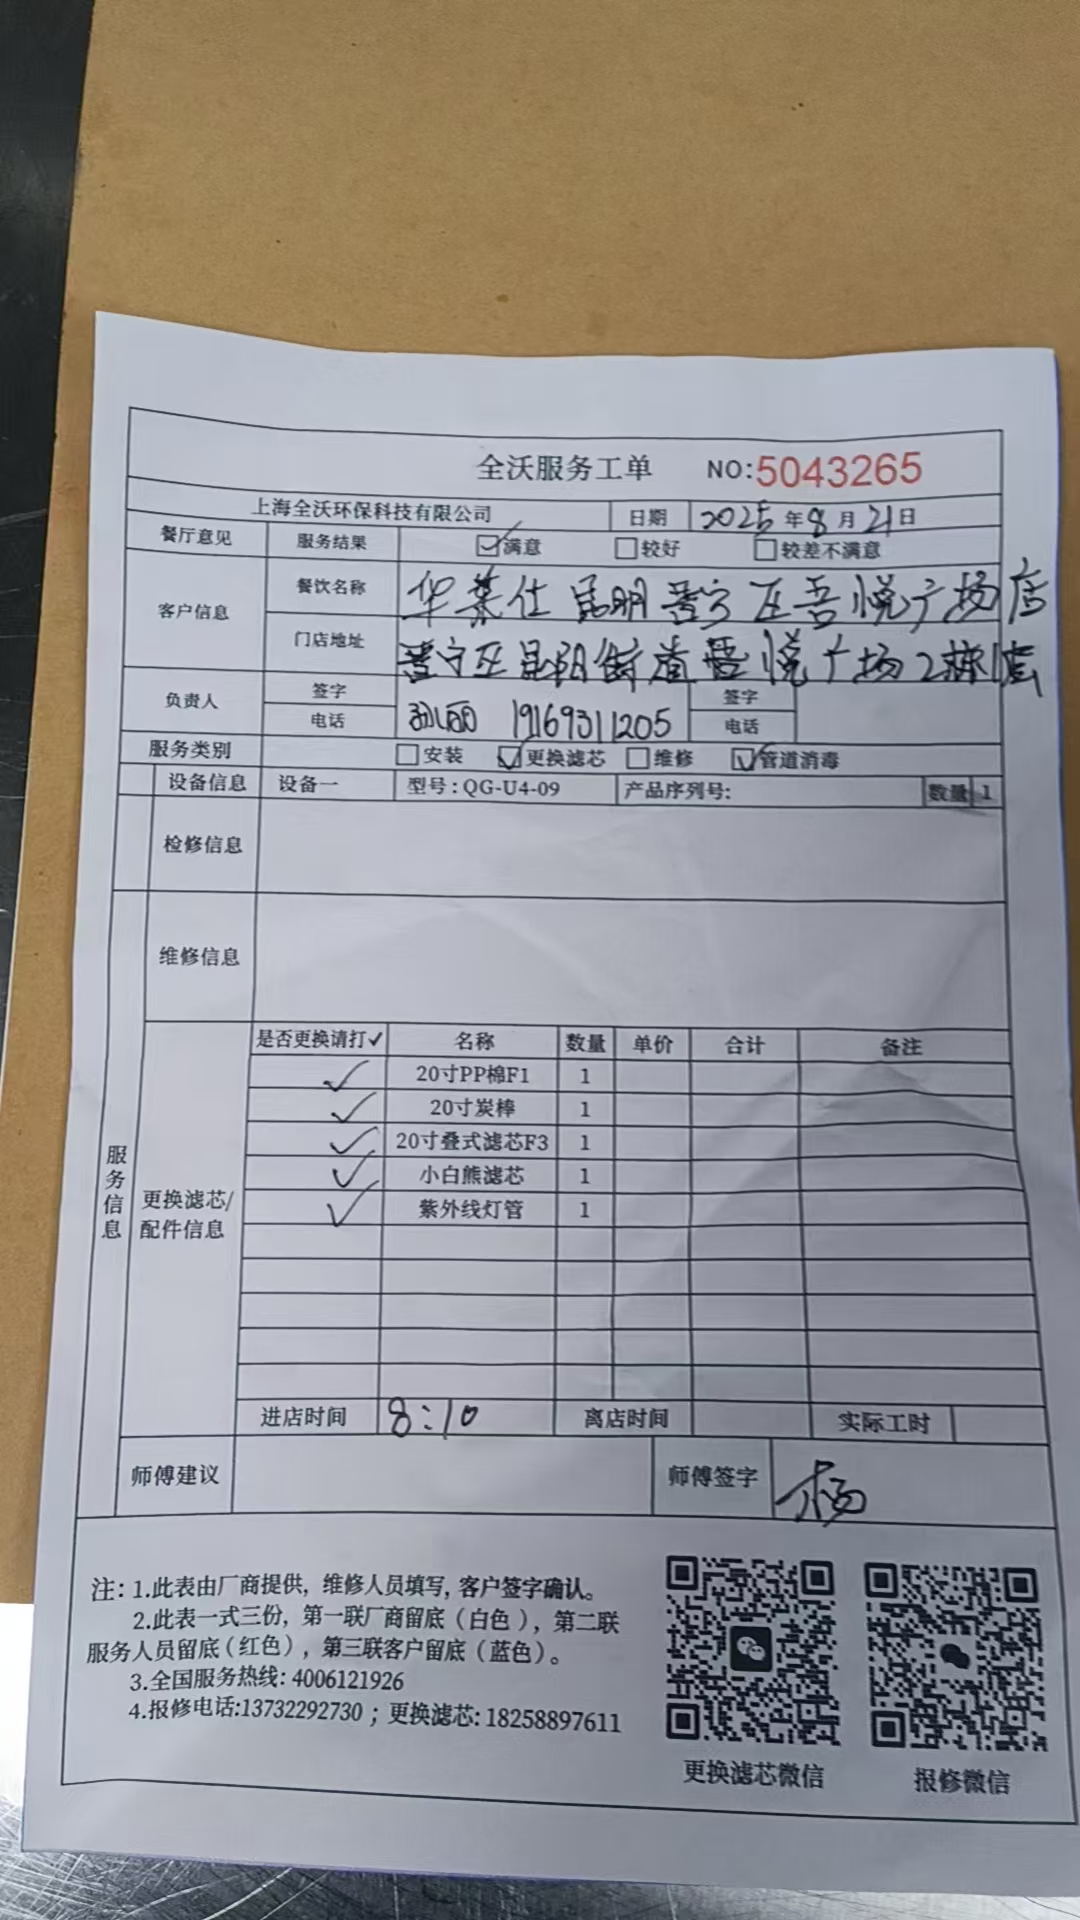 全沃服务工单 NO:5043265
上海全沃环保科技有限公司 日期 2025年8月21日
餐厅意见 服务结果 ☑满意 □较好 □较差不满意
客户信息 餐饮名称 华莱仕昆明晋宁区吾悦广场店
门店地址 晋宁区昆阳街道吾悦广场2栋1店
负责人 签字 签字
电话 19169311205 电话
服务类别 □安装 ☑更换滤芯 □维修 ☑管道消毒
设备信息 设备一 型号:QG-U4-09 产品序列号: 数量 1
检修信息
维修信息
服务信息
更换滤芯/配件信息
是否更换请打✓ 名称 数量 单价 合计 备注
✓ 20寸PP棉F1 1
✓ 20寸炭棒 1
✓ 20寸叠式滤芯F3 1
✓ 小白熊滤芯 1
✓ 紫外线灯管 1
进店时间 8:10 离店时间 实际工时
师傅建议 师傅签字 杨
注: 1.此表由厂商提供, 维修人员填写, 客户签字确认。
2.此表一式三份, 第一联厂商留底(白色), 第二联
服务人员留底(红色), 第三联客户留底(蓝色)。
3.全国服务热线: 4006121926
4.报修电话:13732292730 ; 更换滤芯: 18258897611
更换滤芯微信 报修微信